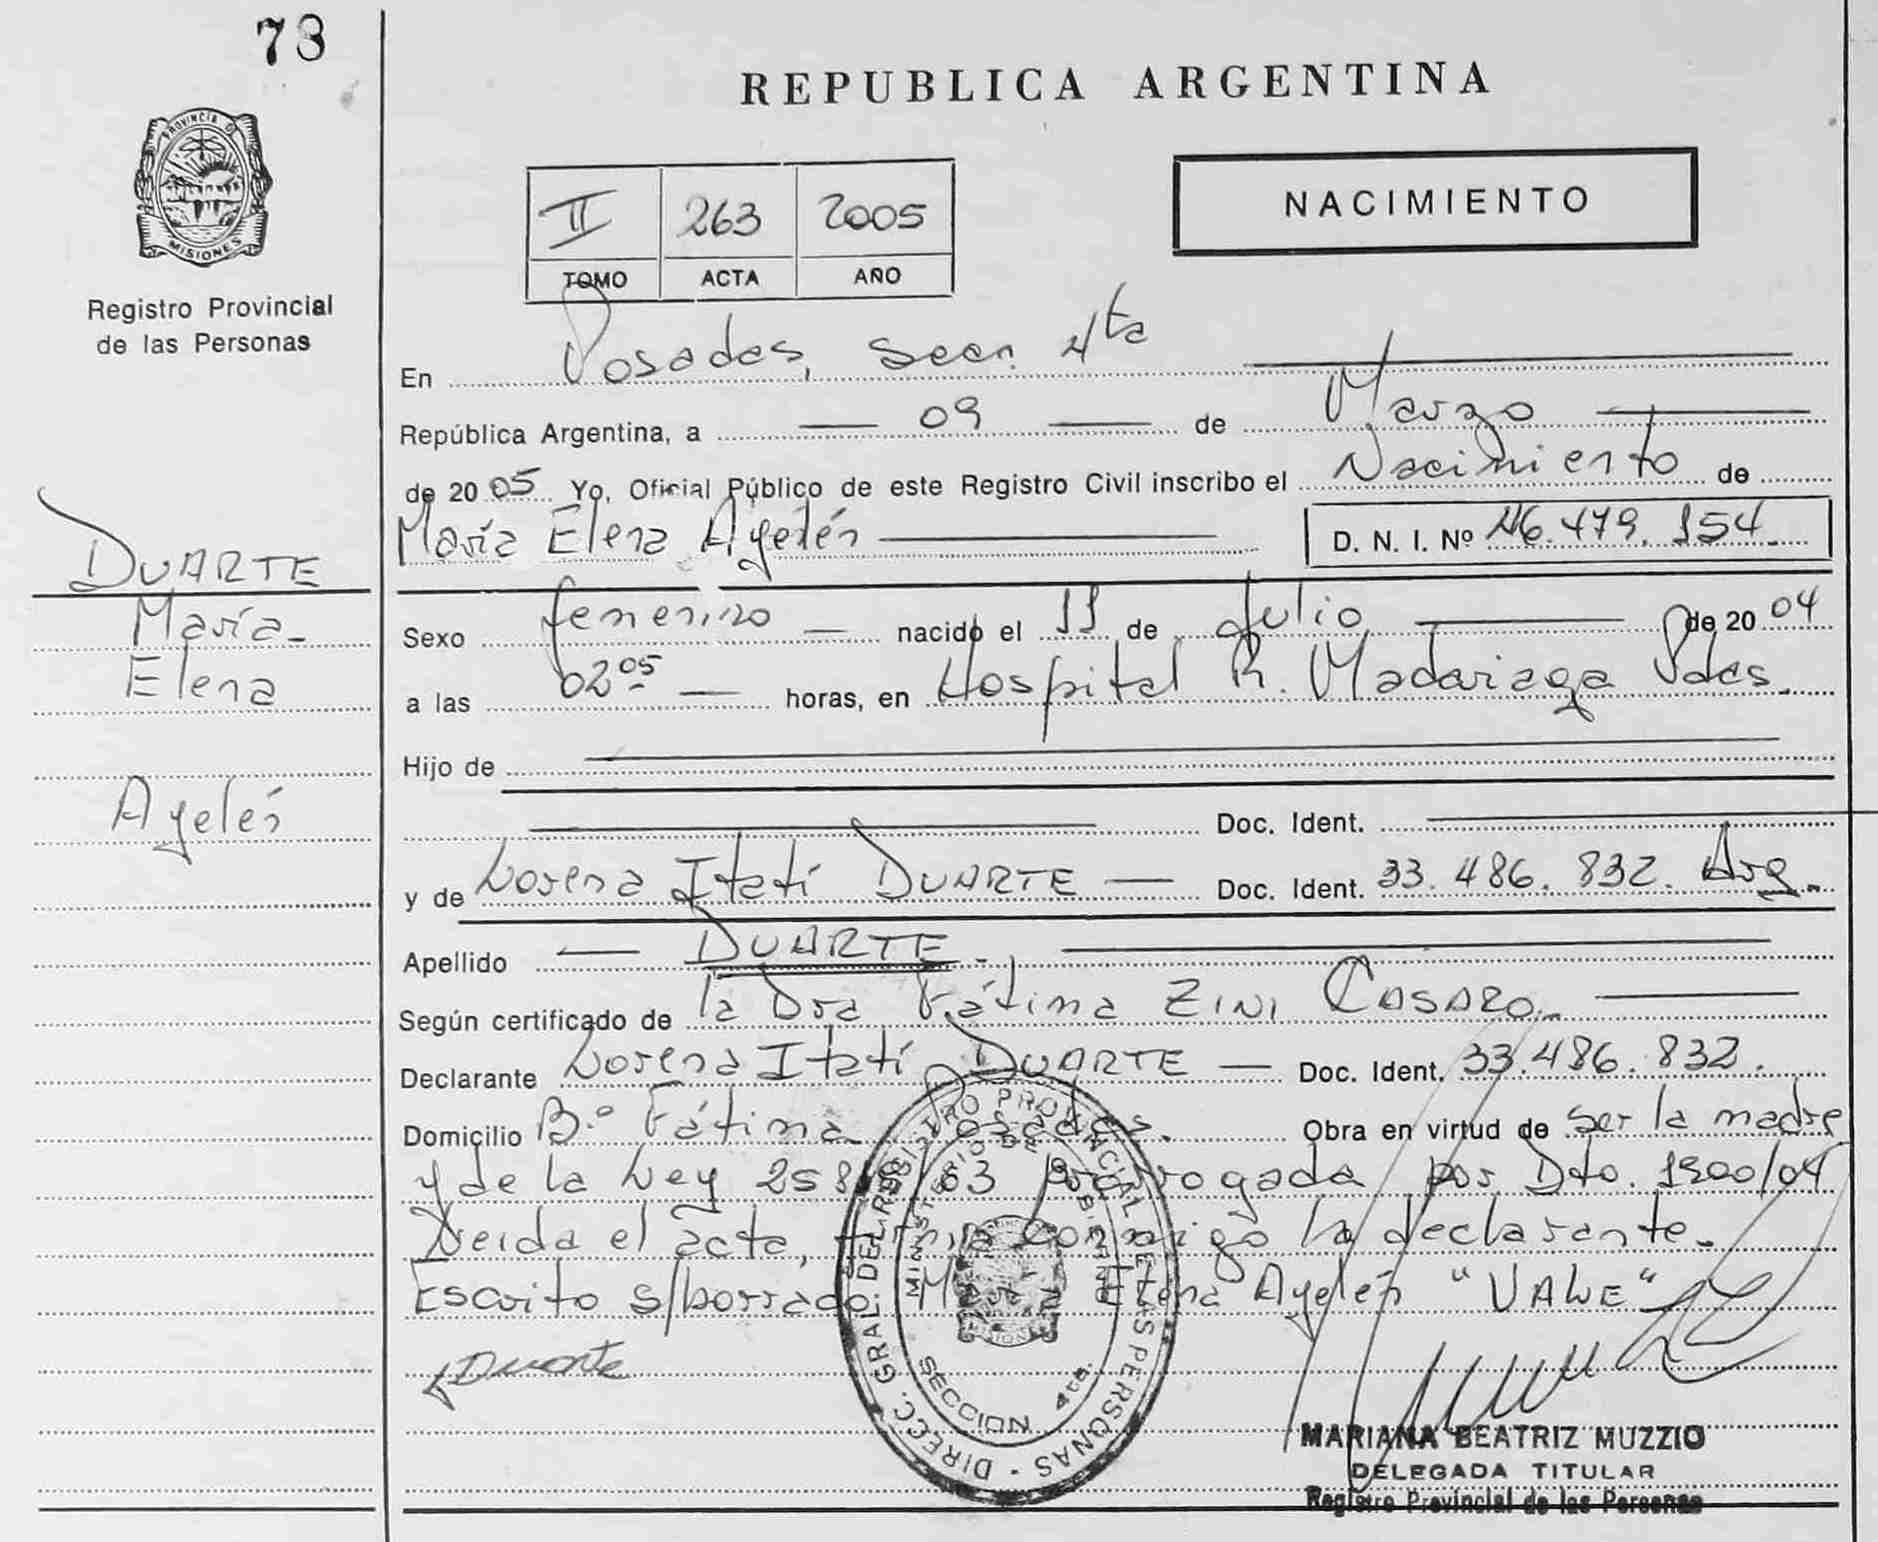 78
PROVINCIA DE
MISIONES
Registro Provincial
de las Personas
DUARTE
María
Elena
Ayelén
REPUBLICA ARGENTINA
NACIMIENTO
II 263 2005
TOMO ACTA AÑO
En Posadas, Secc. 4ta
República Argentina, a 09 de Marzo
de 2005 Yo, Oficial Público de este Registro Civil inscribo el Nacimiento de
María Elena Ayelén D. N. I. Nº 46.479.154
Sexo femenino nacido el 11 de Julio de 2004
a las 02 05 horas, en Hospital R. Madariaga Pdas.
Hijo de
Doc. Ident.
y de Lorena Itatí DUARTE Doc. Ident. 33.486.832. Arg.
Apellido DUARTE
Según certificado de la Dra Fátima ZINI
Declarante Lorena Itatí DUARTE Doc. Ident. 33.486.832.
Domicilio B.º Fátima Posadas. Obra en virtud de ser la madre
y de la Ley prorrogada por Dto. 1900/04
Leida el acta, firma conmigo la declarante.
Escrito s/borrado María Elena Ayelén "VALE"
Duarte
DIRECC. GRAL. DEL REGISTRO PROVINCIAL DE LAS PERSONAS
MINISTERIO DE GOBIERNO
SECCION 4ta.
MARIANA BEATRIZ MUZZIO
DELEGADA TITULAR
Registro Provincial de las Personas